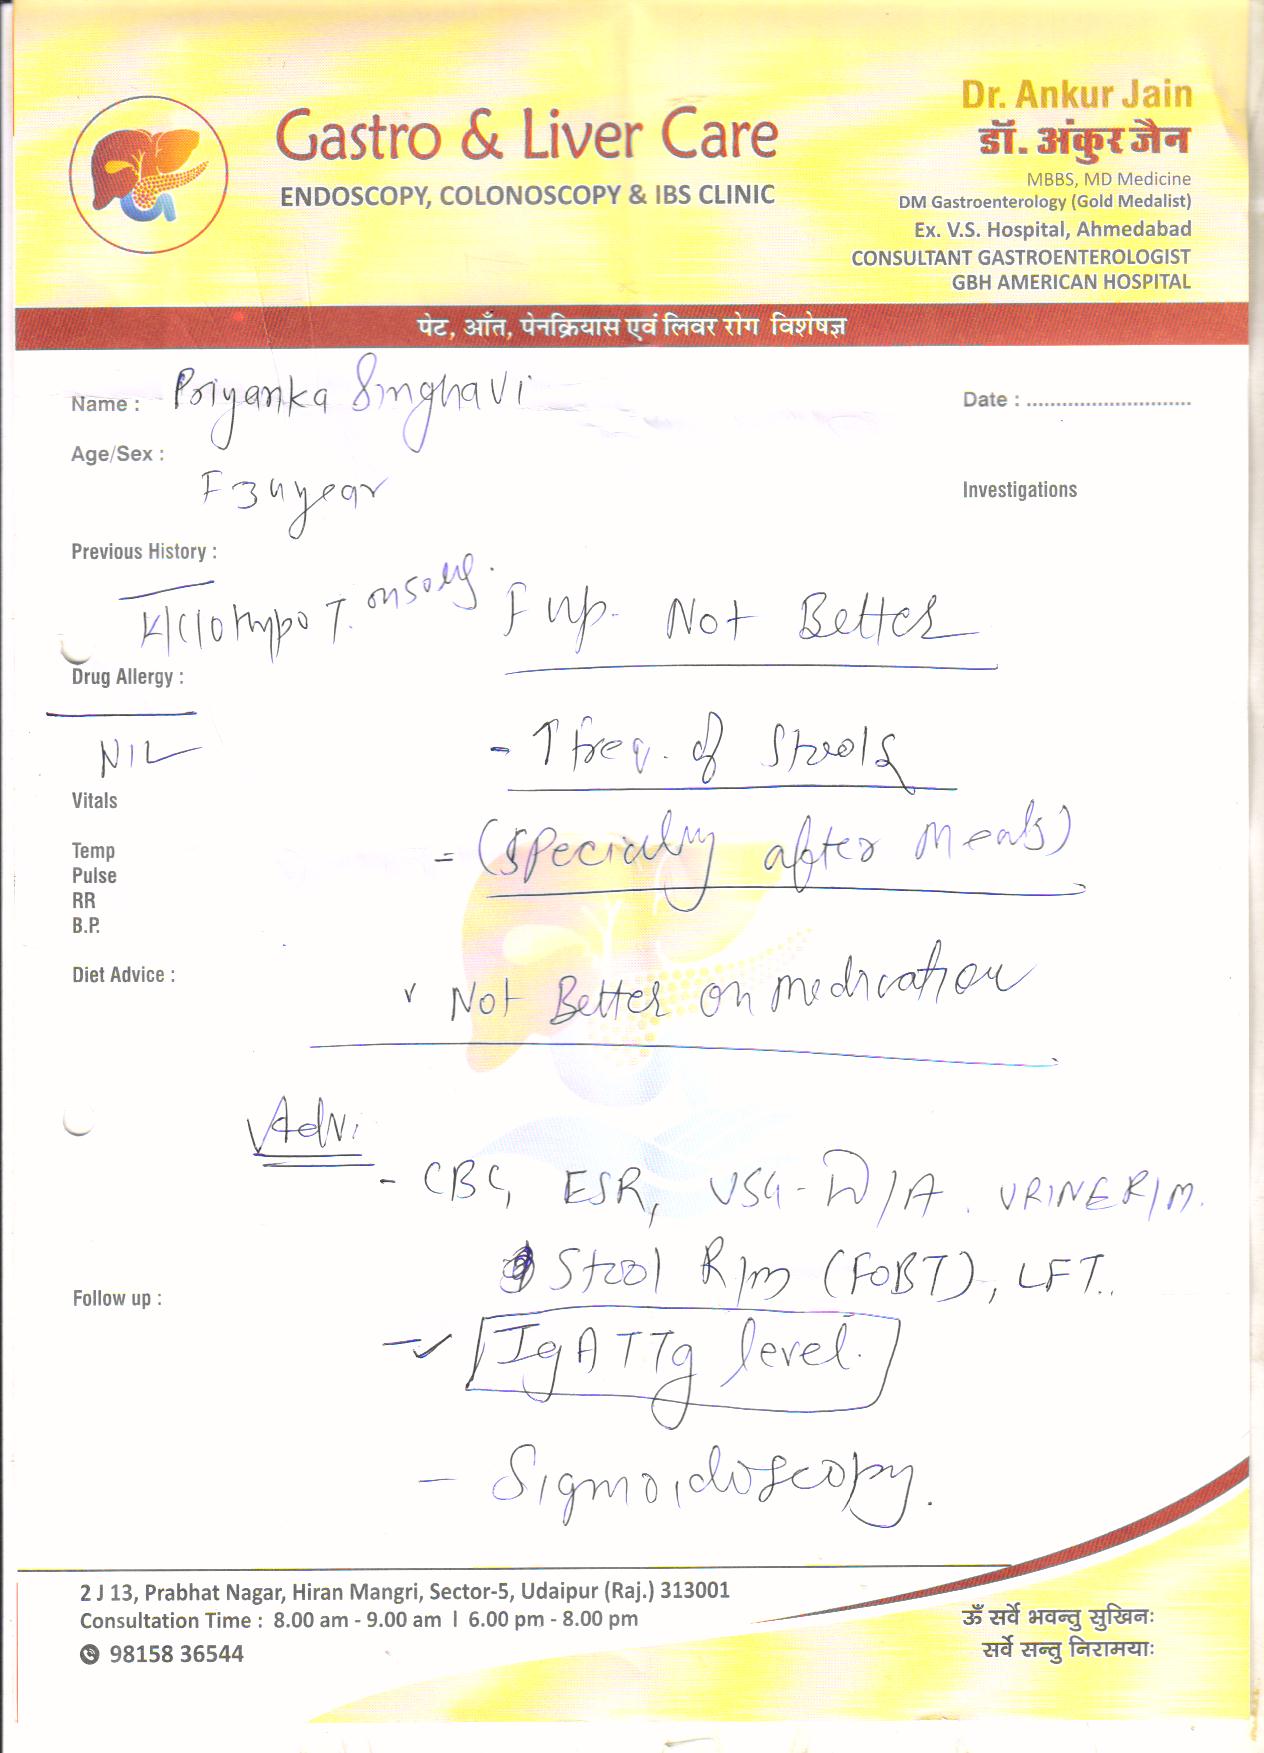 Gastro & Liver Care
ENDOSCOPY, COLONOSCOPY & IBS CLINIC
Dr. Ankur Jain
डॉ. अंकुर जैन
MBBS, MD Medicine
DM Gastroenterology (Gold Medalist)
Ex. V.S. Hospital, Ahmedabad
CONSULTANT GASTROENTEROLOGIST
GBH AMERICAN HOSPITAL
पेट, आँत, पेनक्रियास एवं लिवर रोग विशेषज्ञ
Name : Priyanka Singhavi
Date : ............................
Age/Sex :
F 34 year
Investigations
Previous History :
K/C/O Hypo T. on
F up. Not Better
Drug Allergy :
NIL
- ↑ freq. of Stools
= (Specially after Meals)
Vitals
Temp
Pulse
RR
B.P.
Diet Advice :
Not Better on medication
Adv:
- CBC, ESR, USG - W/A. URINE R/M.
Stool R/m (FOBT), LFT..
Follow up :
IgA TTg level.
- Sigmoidoscopy.
2 J 13, Prabhat Nagar, Hiran Mangri, Sector-5, Udaipur (Raj.) 313001
Consultation Time : 8.00 am - 9.00 am I 6.00 pm - 8.00 pm
98158 36544
ॐ सर्वे भवन्तु सुखिनः
सर्वे सन्तु निरामयाः